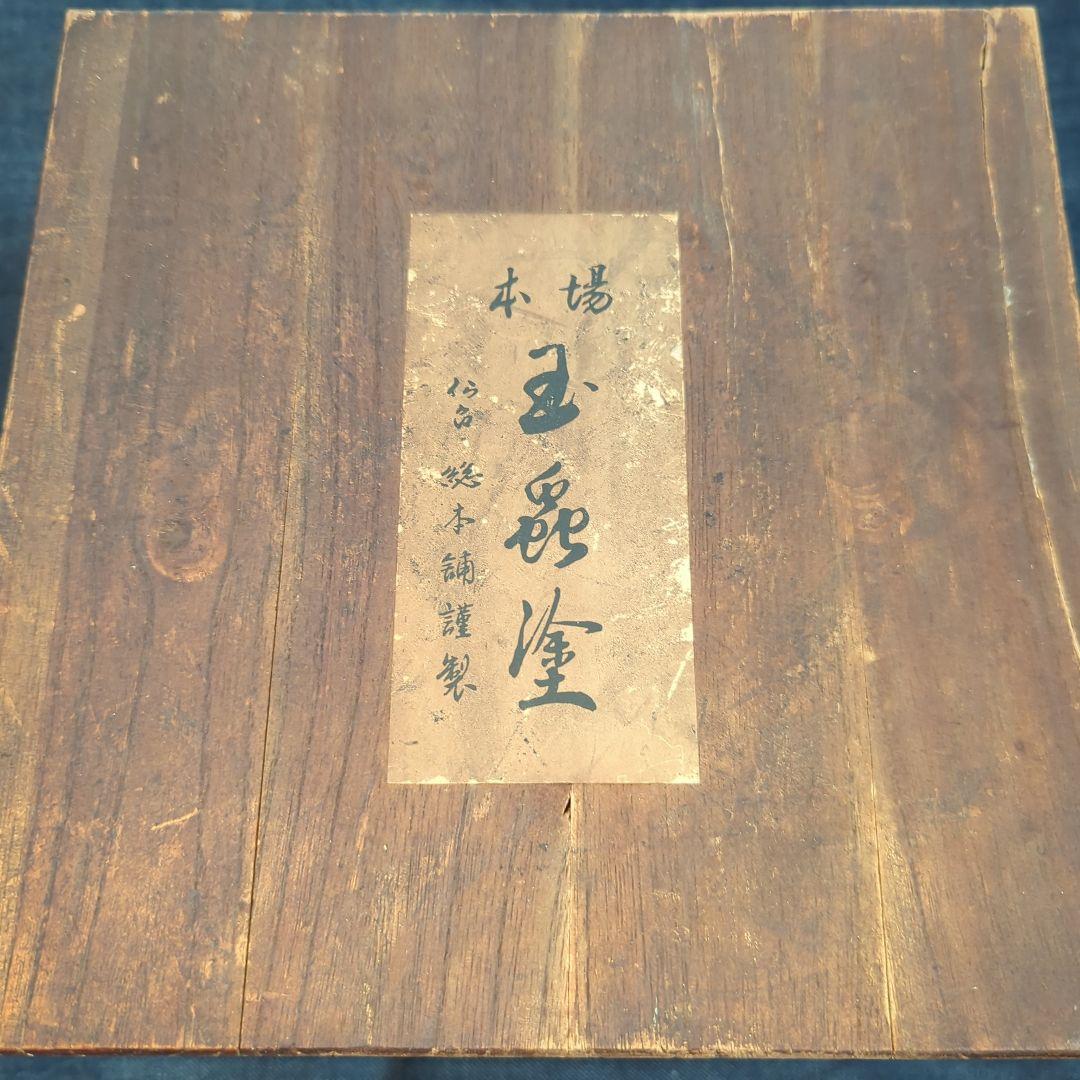 本場
玉蟲塗
仙台総本舗謹製